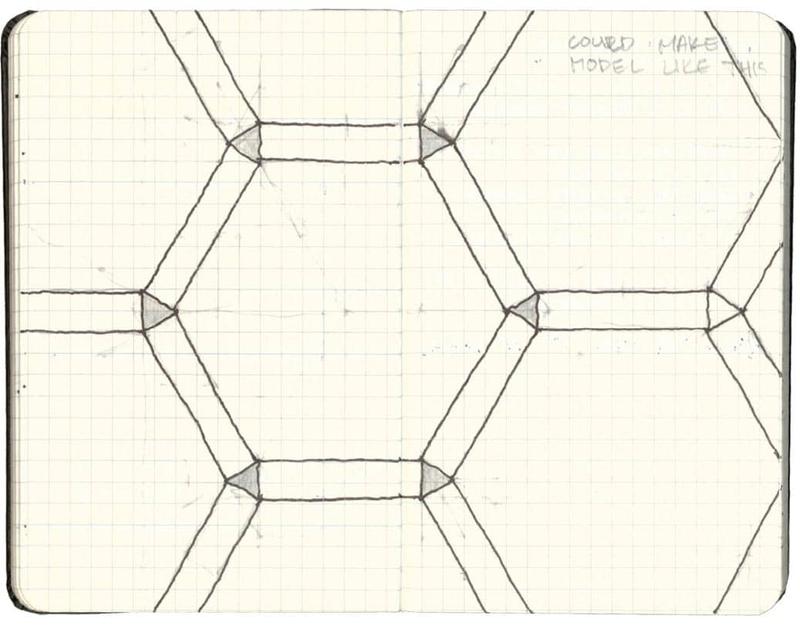 COULD MAKE
MODEL LIKE THIS